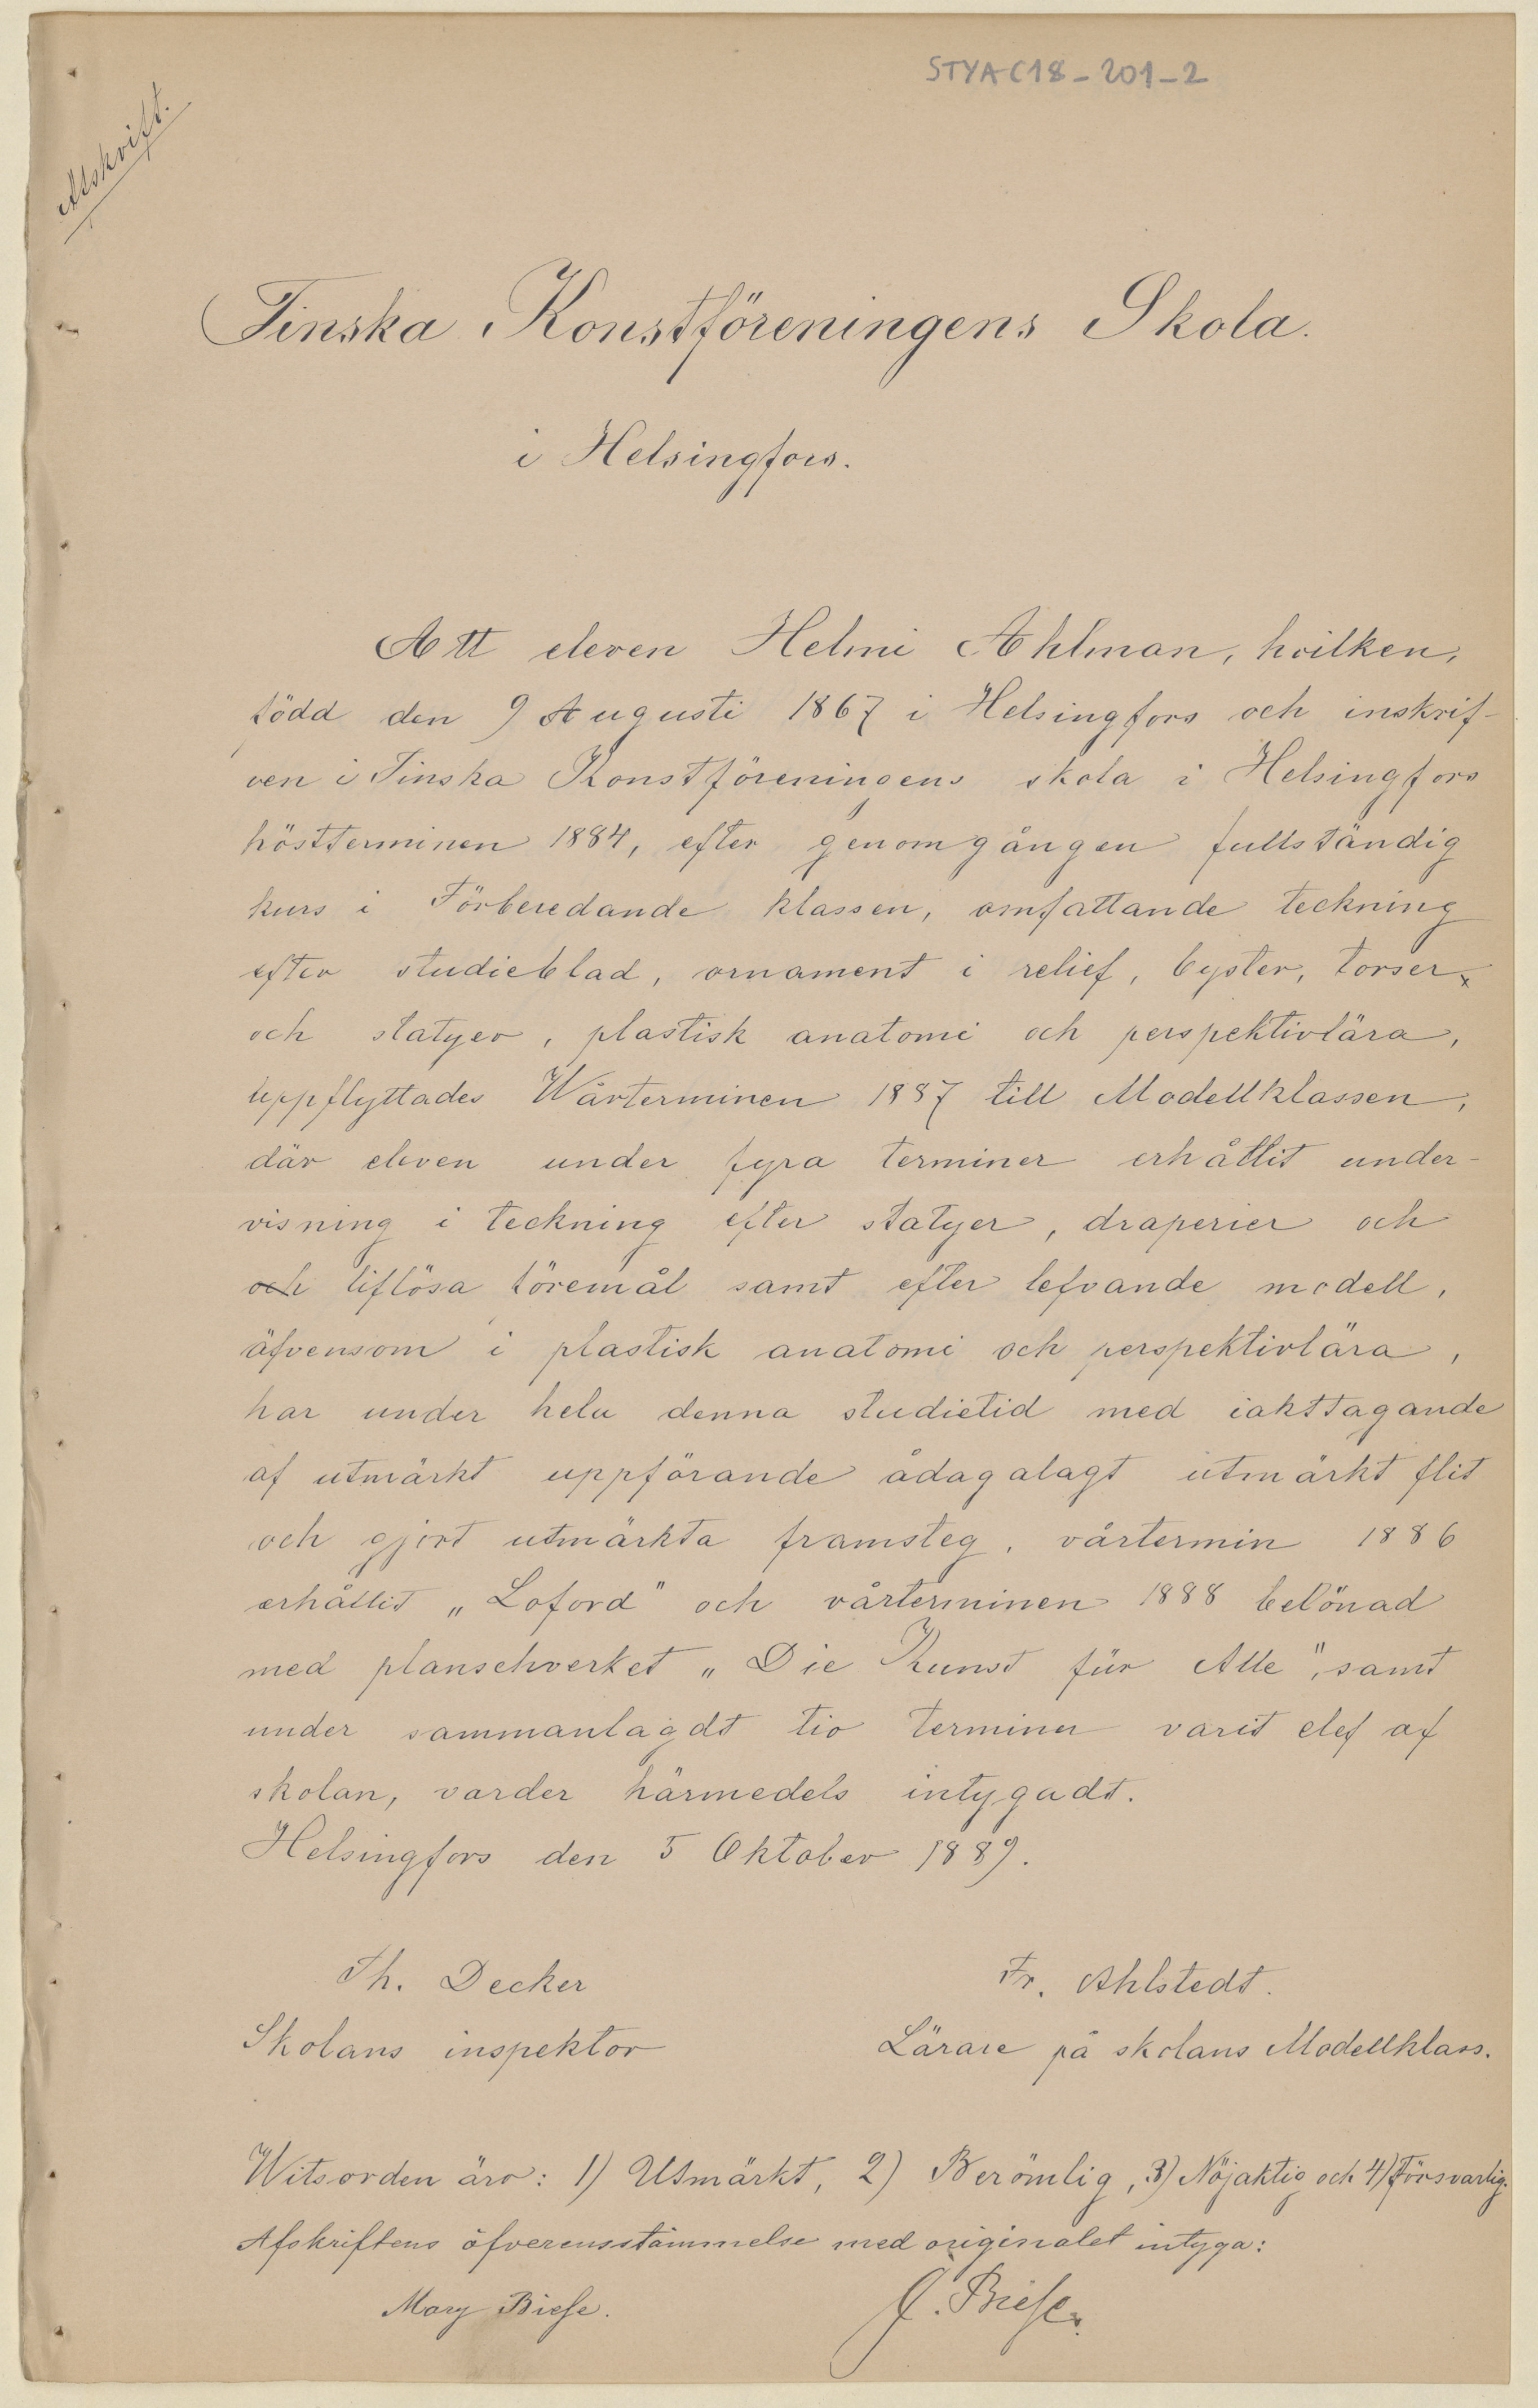 STYA C18-201-2
Afskrift.
Finska Konstföreningens Skola.
i Helsingfors.
Att eleven Helmi Ahlman, hvilken,
född den 9 Augusti 1867 i Helsingfors och inskrif-
ven i Finska Konstföreningens skola i Helsingfors
höstterminen 1884, efter genomgången fullständig
kurs i Förberedande klassen, omfattande teckning
efter studieblad, ornament i relief, byster, torser
och statyer, plastisk anatomi och perspektivlära,
uppflyttades Wårterminen 1887 till Modellklassen,
där eleven under fyra terminer erhållit under-
visning i teckning efter statyer, draperier och
och liflösa föremål samt efter lefvande modell,
äfvensom i plastisk anatomi och perspektivlära,
har under hela denna studietid med iakttagande
af utmärkt uppförande ådagalagt utmärkt flit
och gjort utmärkta framsteg, vårtermin 1886
erhållit „Loford" och vårterminen 1888 belönad
med planschverket „Die Kunst für Alle", samt
under sammanlagdt tio terminer varit elef af
skolan, varder härmedels intygadt.
Helsingfors den 5 Oktober 1889.
Th. Decker
Fr. Ahlstedt.
Skolans inspektor
Lärare på skolans Modellklass.
Witsorden äro: 1) Utmärkt, 2) Berömlig, 3) Nöjaktig och 4) Försvarlig.
Afskriftens öfverensstämmelse med originalet intyga:
Mary Biese.
J. Biese.